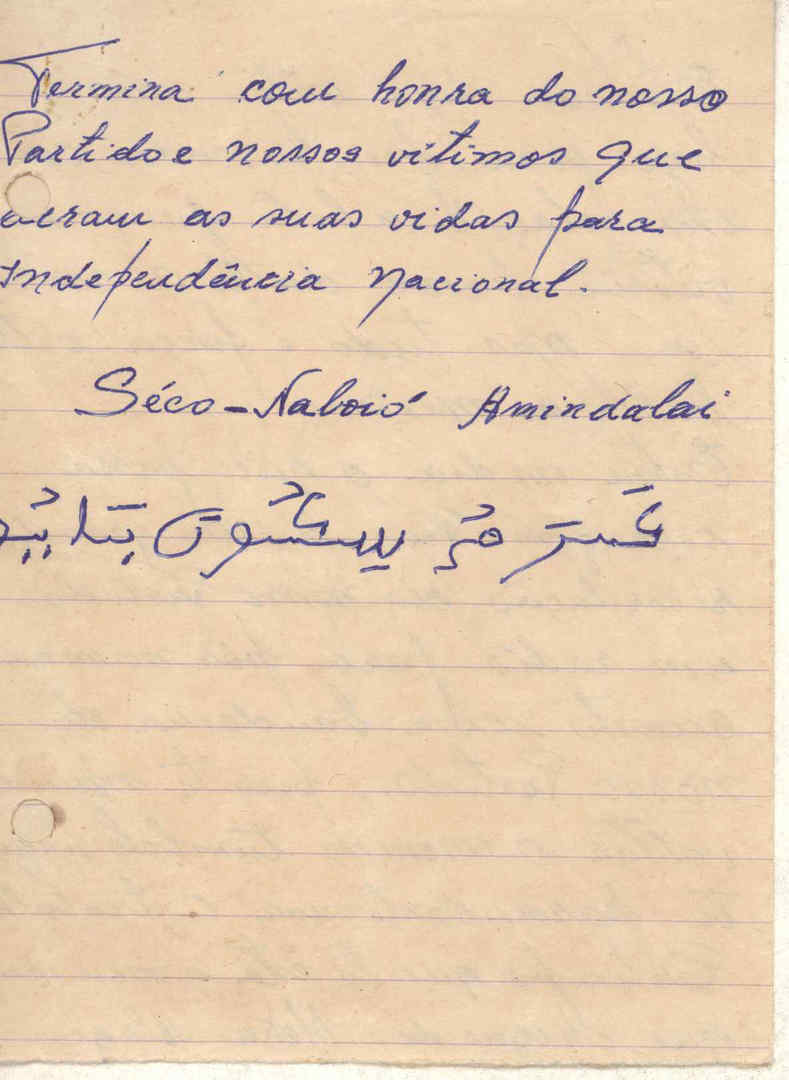 Termina com honra do nosso
Partido e nossos vitimos que
deram as suas vidas para
Independência Nacional.
Séco-Naboió Amindalai